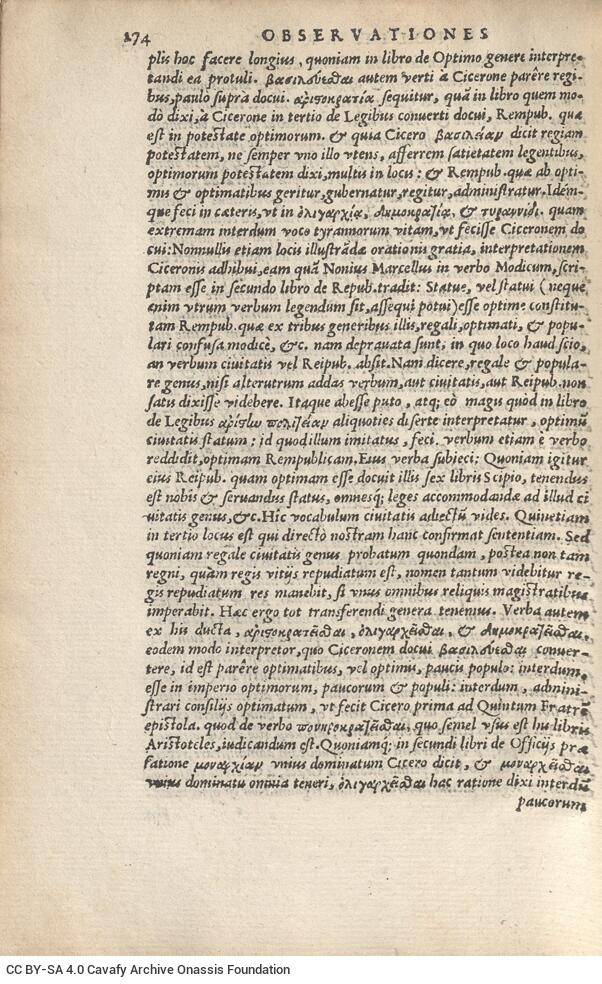 274 OBSERVATIONES
plis hoc facere longius, quoniam in libro de Optimo genere interpre-
tandi ea protuli. βασιλεύεσθαι autem verti à Cicerone parêre regi-
bus, paulò suprà docui. ἀριστοκρατία sequitur, quã in libro quem mo-
dò dixi, à Cicerone in tertio de Legibus conuerti docui, Rempub. quæ
est in potestate optimorum. & quia Cicero βασιλείαν dicit regiam
potestatem, ne semper vno illo vtens, afferrem satietatem legentibus,
optimorum potestatem dixi, multis in locis: & Rempub. quæ ab opti-
mis & optimatibus geritur, gubernatur, regitur, administratur. Idem-
que feci in cæteris, vt in ὀλιγαρχίᾳ, δημοκρατίᾳ, & τυραννίδι. quam
extremam interdum voco tyrannorum vitam, vt fecisse Ciceronem do
cui: Nonnullis etiam locis illustrãdæ orationis gratia, interpretationem
Ciceronis adhibui, eam quã Nonius Marcellus in verbo Modicum, scri-
ptam esse in secundo libro de Repub. tradit: Statue, vel statui (neque
enim vtrum verbum legendum sit, assequi potui) esse optimè constitu-
tam Rempub. quæ ex tribus generibus illis, regali, optimati, & popu-
lari confusa modicè, &c. nam deprauata sunt, in quo loco haud scio,
an verbum ciuitatis vel Reipub. absit. Nam dicere, regale & popula-
re genus, nisi alterutrum addas verbum, aut ciuitatis, aut Reipub. non
satis dixisse videbere. Itaque abesse puto, atq; eò magis quòd in libro
de Legibus ἀρίστην πολιτείαν aliquoties disertè interpretatur, optimũ
ciuitatis statum: id quod illum imitatus, feci. verbum etiam è verbo
reddidit, optimam Rempublicam. Eius verba subieci: Quoniam igitur
eius Reipub. quam optimam esse docuit illis sex libris Scipio, tenendus
est nobis & seruandus status, omnesq; leges accommodandæ ad illud ci
uitatis genus, &c. Hîc vocabulum ciuitatis adiectũ vides. Quinetiam
in tertio locus est qui directò nostram hanc confirmat sententiam. Sed
quoniam regale ciuitatis genus probatum quondam, postea non tam
regni, quàm regis vitijs repudiatum est, nomen tantum videbitur re-
gis repudiatum res manebit, si vnus omnibus reliquis magistratibus
imperabit. Hæc ergo tot transferendi genera tenemus. Verba autem
ex his ducta, ἀριστοκρατεῖσθαι, ὀλιγαρχεῖσθαι, & δημοκρατεῖσθαι,
eodem modo interpretor, quo Ciceronem docui βασιλεύεσθαι conuer-
tere, id est parêre optimatibus, vel optimis, paucis populo: interdum,
esse in imperio optimorum, paucorum & populi: interdum, admini-
strari consilijs optimatum, vt fecit Cicero prima ad Quintum Fratrẽ
epistola. quod de verbo πονηροκρατεῖσθαι, quo semel vsus est his libris
Aristoteles, iudicandum est. Quoniamq; in secundi libri de Officijs præ
fatione μοναρχίαν vnius dominatum Cicero dicit, & μοναρχεῖσθαι
vnius dominatu omnia teneri, ὀλιγαρχεῖσθαι hac ratione dixi interdũ
paucorum
CC BY-SA 4.0 Cavafy Archive Onassis Foundation